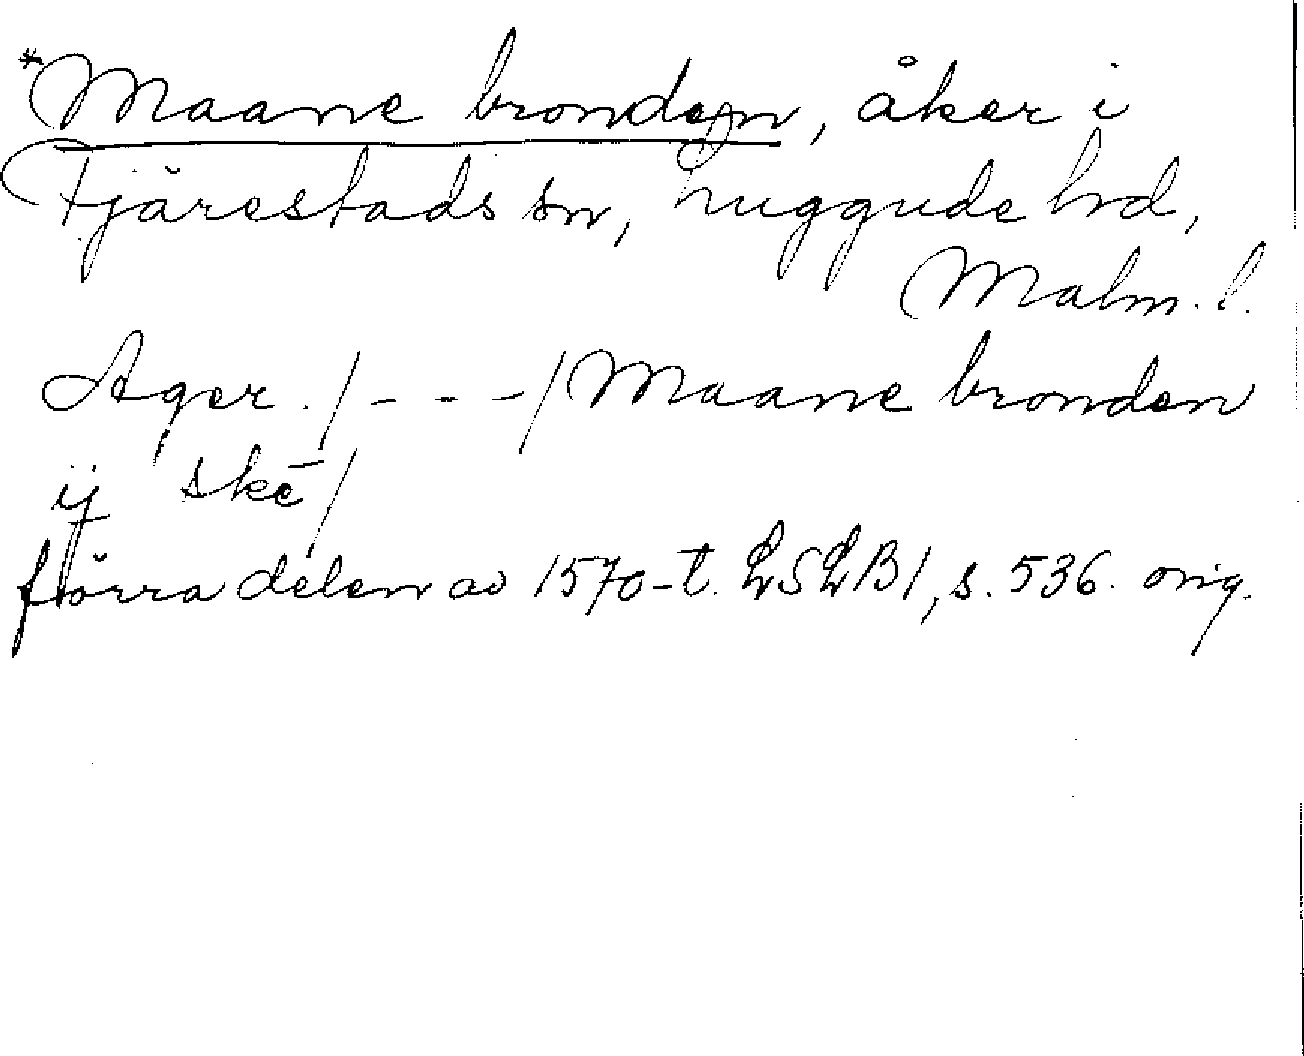 *Maane bronden, åker i
Fjärestads sn, Luggude hd,
Malm. l.
Ager. /- - -/ Maane bronden
ij skē/
förra delen av 1570-t. LSLB1, s. 536. orig.